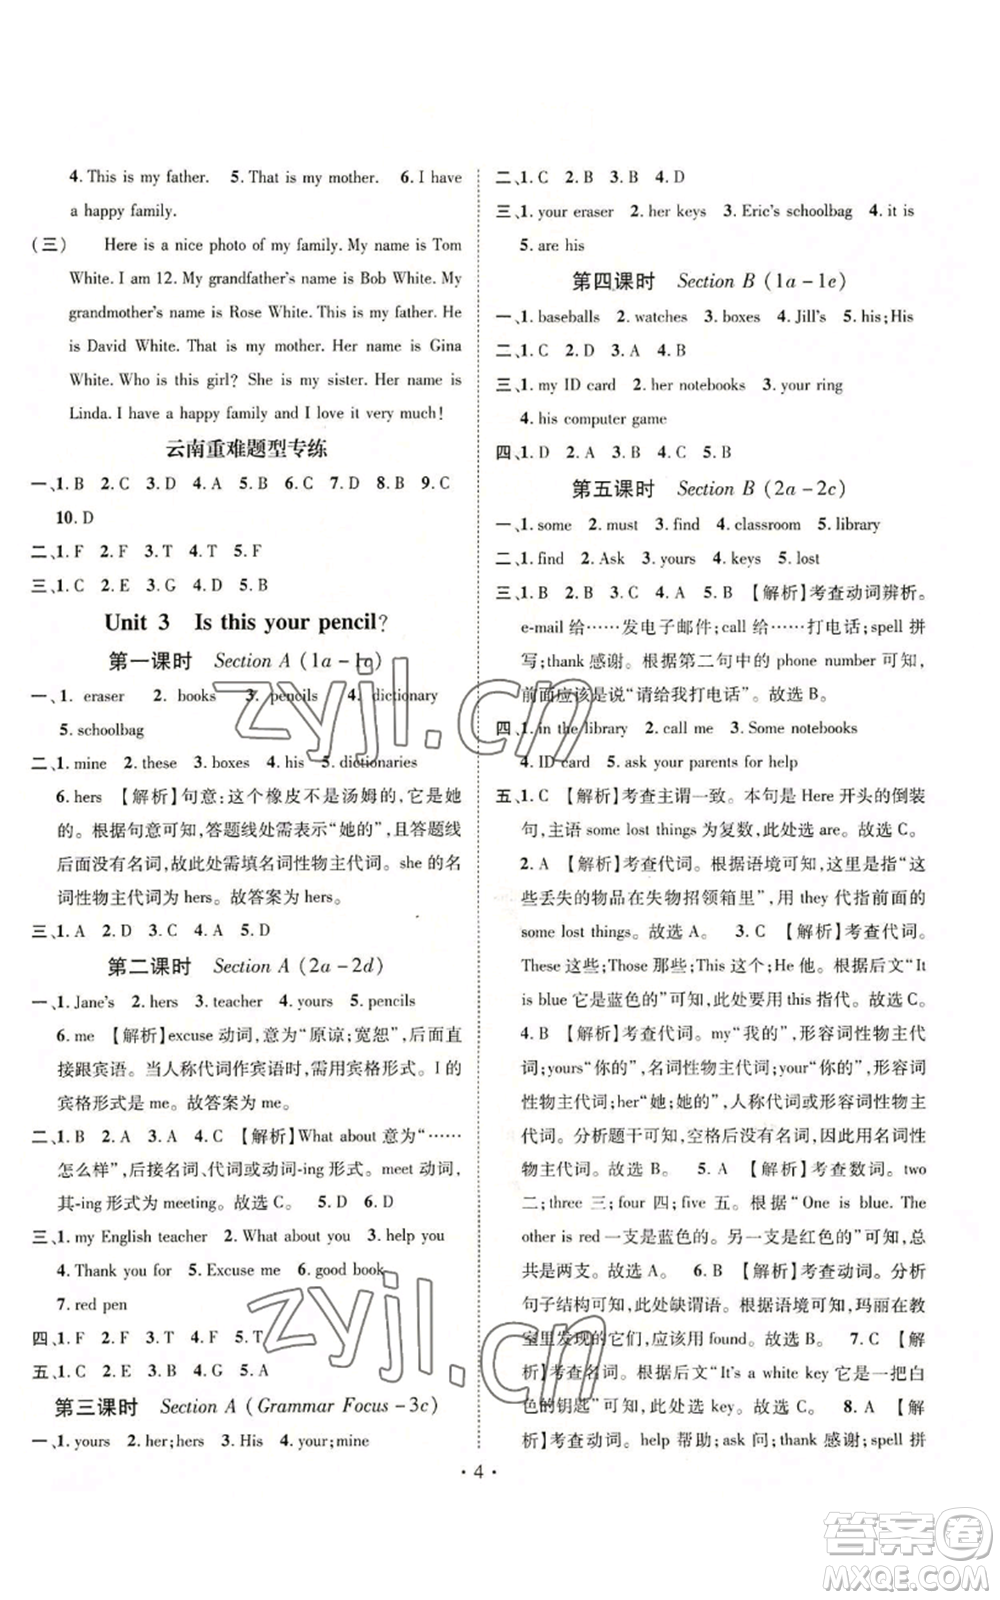 4. This is my father. 5. That is my mother. 6. I have
a happy family.
(三) Here is a nice photo of my family. My name is Tom
White. I am 12. My grandfather's name is Bob White. My
grandmother's name is Rose White. This is my father. He
is David White. That is my mother. Her name is Gina
White. Who is this girl? She is my sister. Her name is
Linda. I have a happy family and I love it very much!
云南重难题型专练
一、1. B 2. C 3. D 4. A 5. B 6. D 7. D 8. B 9. C
10. D
二、1. F 2. F 3. T 4. T 5. F
三、1. C 2. E 3. G 4. D 5. B
Unit 3 Is this your pencil?
第一课时 Section A (1a-1c)
一、1. eraser 2. books 3. pencils 4. dictionary
5. schoolbag
二、1. mine 2. these 3. boxes 4. his 5. dictionaries
6. hers 【解析】句意:这个橡皮不是汤姆的,它是她
的。根据句意可知,答题线处需表示“她的”,且答题线
后面没有名词,故此处需填名词性物主代词。she 的名
词性物主代词为 hers。故答案为 hers。
三、1. A 2. D 3. A 4. B 5. D
第二课时 Section A (2a-2d)
一、1. Jane's 2. hers 3. teacher 4. yours 5. pencils
6. me 【解析】excuse 动词,意为“原谅;宽恕”,后面直
接跟宾语。当人称代词作宾语时,需用宾格形式。I 的
宾格形式是 me。故答案为 me。
二、1. B 2. A 3. A 4. C 【解析】What about 意为“……
怎么样”,后接名词、代词或动词-ing 形式。meet 动词,
其-ing 形式为 meeting。故选 C。 5. D 6. D
三、1. my English teacher 2. What about you 3. help you
4. Thank you for 5. Excuse me 6. good book
7. red pen
四、1. F 2. F 3. T 4. F 5. T
五、1. C 2. E 3. B 4. G 5. A
第三课时 Section A (Grammar Focus-3c)
一、1. yours 2. her;hers 3. His 4. your;mine
二、1. C 2. B 3. B 4. D
三、1. your eraser 2. her keys 3. Eric's schoolbag 4. it is
5. are his
第四课时 Section B (1a-1e)
一、1. baseballs 2. watches 3. boxes 4. Jill's 5. his;His
二、1. C 2. D 3. A 4. B
三、1. my ID card 2. her notebooks 3. your ring
4. his computer game
四、1. D 2. A 3. A 4. C 5. B
第五课时 Section B (2a-2c)
一、1. some 2. must 3. find 4. classroom 5. library
二、1. find 2. Ask 3. yours 4. keys 5. lost
三、1. B 2. C 3. C 4. A 5. B 【解析】考查动词辨析。
e-mail 给……发电子邮件;call 给……打电话;spell 拼
写;thank 感谢。根据第二句中的 phone number 可知,
前面应该是说“请给我打电话”。故选 B。
四、1. in the library 2. call me 3. Some notebooks
4. ID card 5. ask your parents for help
五、1. C 【解析】考查主谓一致。本句是 Here 开头的倒装
句,主语 some lost things 为复数,此处选 are。故选 C。
2. A 【解析】考查代词。根据语境可知,这里是指“这
些丢失的物品在失物招领箱里”,用 they 代指前面的
some lost things。故选 A。 3. C 【解析】考查代词。
These 这些;Those 那些;This 这个;He 他。根据后文“It
is blue 它是蓝色的”可知,此处要用 this 指代。故选 C。
4. B 【解析】考查代词。my“我的”,形容词性物主代
词;yours“你的”,名词性物主代词;your“你的”,形容
词性物主代词;her“她;她的”,人称代词或形容词性物主
代词。分析题干可知,空格后没有名词,因此用名词性
物主代词。故选 B。 5. A 【解析】考查数词。two
二;three 三;four 四;five 五。根据“One is blue. The
other is red 一支是蓝色的。另一支是红色的”可知,
总共是两支。故选 A。 6. B 【解析】考查动词。分析
句子结构可知,此处缺谓语。根据语境可知,玛丽在教
室里发现的它们,应该用 found。故选 B。 7. C 【解
析】考查名词。根据后文“It's a white key 它是一把白
色的钥匙”可知,此处选 key。故选 C。 8. A 【解
析】考查动词。help 帮助;ask 问;thank 感谢;spell 拼
· 4 ·
zyjl.cn
zyjl.cn
答案卷
MXQE.COM